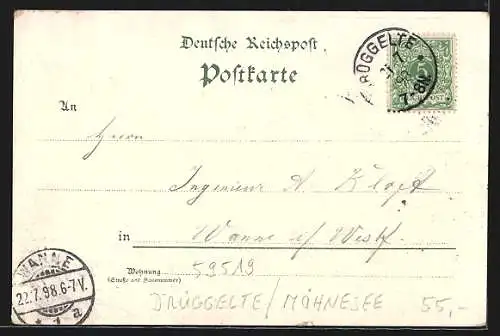 Deutsche Reichspost
Postkarte
DRÜGGELTE
7-8N
An
Herrn
Ingenieur A. Kloft
in Wanne i/ Westf.
Wohnung
(Straße und Hausnummer)
59519
WANNE
22.7.98.6-7V.
* 1 a
DRÜGGELTE/MÖHNESEE 55,-